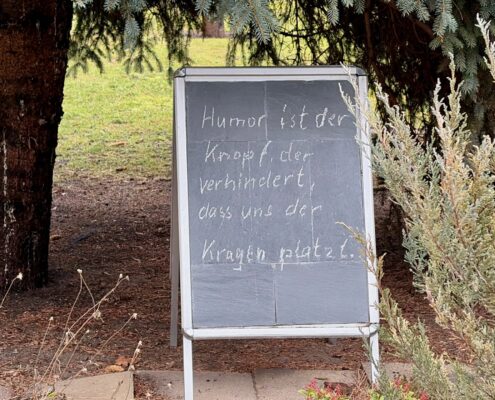 Humor ist der
Knopf, der
verhindert,
dass uns der
Kragen platzt.